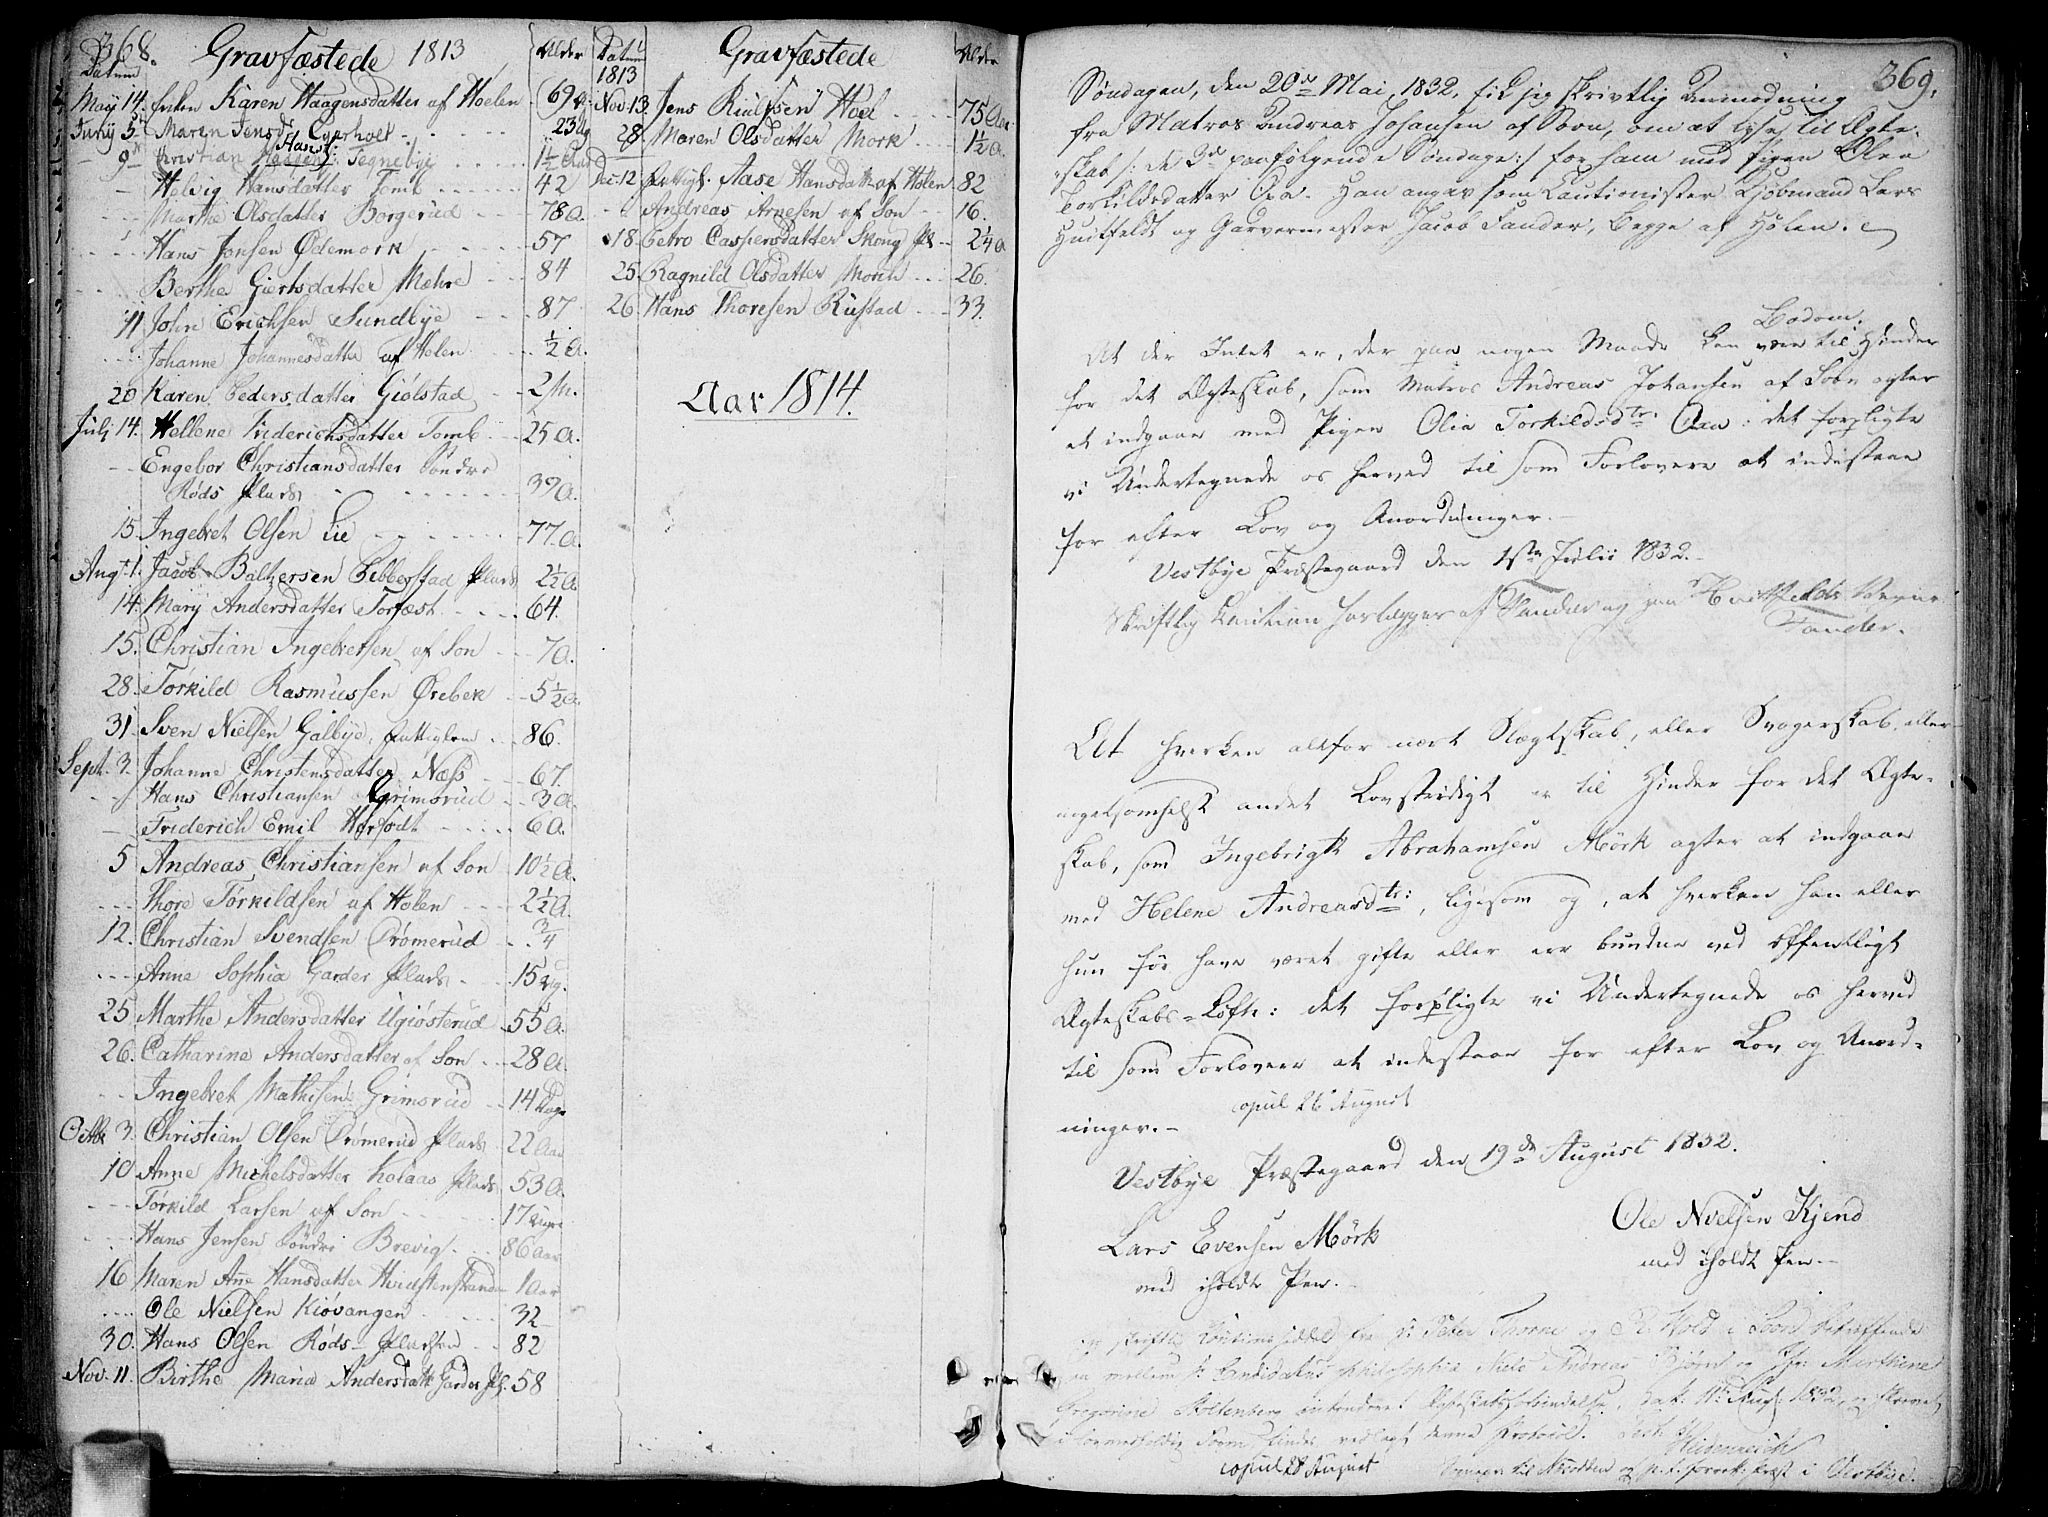 368.
Gravfæstede 1813
Datum
Alder
May 14. Enken Karen Haagensdatter af Hoelen 69 a.
Juny 5 Maren Jensd.
23
Hans:
9 Christian Tegnebye 1½ Aar
Helvig Hansdatter Tomb 42
Marthe Olsdatter Borgerud 78 a.
Hans Jonsen Ødemork 57
Berthe Giertsdatter Mæhre 84
11 John Erichsen Sundbye 87
Johanne Johannesdatter af Holen ½ a.
20 Karen Pedersdatter Giølstad 2 M.
July 14. Hellene Friderichsdatter Tomb 25 a.
Engebor Christiansdatter Søndre
Røds Plads 39 a.
15 Ingebret Olsen Lie 77. a.
Aug. 1. Jacob Baltzersen Kibberstad Plads 2½ a
14. Mary Andersdatter Torfæst 64.
15. Christian Ingebretsen af Son 70.
28. Torkild Rasmussen Ørebek 5½ a
31. Sven Nielsen Galbye, fattiglem 86.
Sept. 3. Johanne Christensdatter Næss 67.
Hans Christiansen Grimsrud 3 a.
Friderich Emil Horfødt 6 a.
5 Andreas Christiansen af Son 10½ a.
Thore Törkildsen af Holen 2½ a.
12. Christian Svendsen Krømerud ¾
Anne Sophia Garder Plads 15
25 Marthe Andersdatter Ugiøsterud 55 a.
26. Catharine Andersdatter af Son 28 a.
Ingebret Mathisen Grimsrud 14 Dage
Octbr 3. Christian Olsen Krømerud Plads 22 Aar
10 Anne Michelsdatter Kolaas Plads 53 a.
Törkild Larsen af Son 17 Dage
Hans Jensen Søndre Brevig 86 Aar
16 Maren Ane Hansdatter Hvidstenstranden 1 Aar
Ole Nielsen Kiøvangen 32
30. Hans Olsen Røds-Pladsen 82
Nov. 11. Birthe Maria Andersdatt. Garder Pl. 58
Datum
1813
Gravfæstede
Alder
Nov. 13. Jens Hoel 75 Aar
28. Maren Olsdatter Mork 1½ a.
Dec. 12 Fattigl. Aase Hansdatt. af Holen 82
Andreas Arnesen af Son 16.
18 Petro Caspersdatter Skoug Pl. 2¼ a
25. Ragnild Olsdatter Mork 26.
26. Hans Thoresen Rustad 33.
Aar 1814.
369.
Søndagen, den 20de Mai, 1832, fik jeg skrivtlig Anmodning
fra Matros Andreas Johansen af Soon, om at lyse til Ægte-
skab /: de 3de paafølgende Søndage :/ for ham med Pigen Olea
Torkildsdatter Oxa. Han angav som Cautionister Kjøbmand Lars
Huitfeldt og Garvermester Jacob Fander, begge af Hølen.
At der Intet er, der paa nogen Maade kan være til Hinder
for det Ægteskab, som Matros Andreas Johansen af Soon agter
at indgaae med Pigen Olia Torkildsdtr: Oxa: det forpligte
vi Undertegnede os herved til som Forlovere at indestaae
for efter Lov og Anordninger.
Vestbye Præstegaard den 1ste Julii 1832.
Skriftlig Caution forlægges af Fander og paa Huitfeldts Vegne
Fander.
At hverken altfor nært Slægtskab, eller Svogerskab, eller
nogetsomhelst andet Lovstridigt er til Hinder for det Ægte-
skab, som Ingebrigt Abrahamsen Mørk agter at indgaae
med Helene Andreasdtr:, ligesom og, at hverken han eller
hun før have været gifte eller ere bundne ved offentligt
Ægteskabs-Løfte: det forpligte vi Undertegnede os herved
til som Forlovere at indestaae for efter Lov og Anord-
ninger.-
copul 26 August
Vestbye Præstegaard den 19de August 1832.
Lars Evensen Mørk
med iholdt Pen.
Ole Nielsen Kjend
med iholdt Pen.-
skriftlig fra Hr. Peter Thorne og Wold i Soon betræffende
mellem Hr. Candidatus philosophiæ Niels Andreas Bjørn og Jfr. Marthine
Gregorine Stoltenberg intenderet Ægteskabsforbindelse, dat. 11te Aug: 1832, og skrevet
i lovmæssig Form, findes vedlagt denne Protocol. Test.
Heidenreich
copul 28 August
Sogнepr. til Næsodden og p. t. præst i Vestbye.